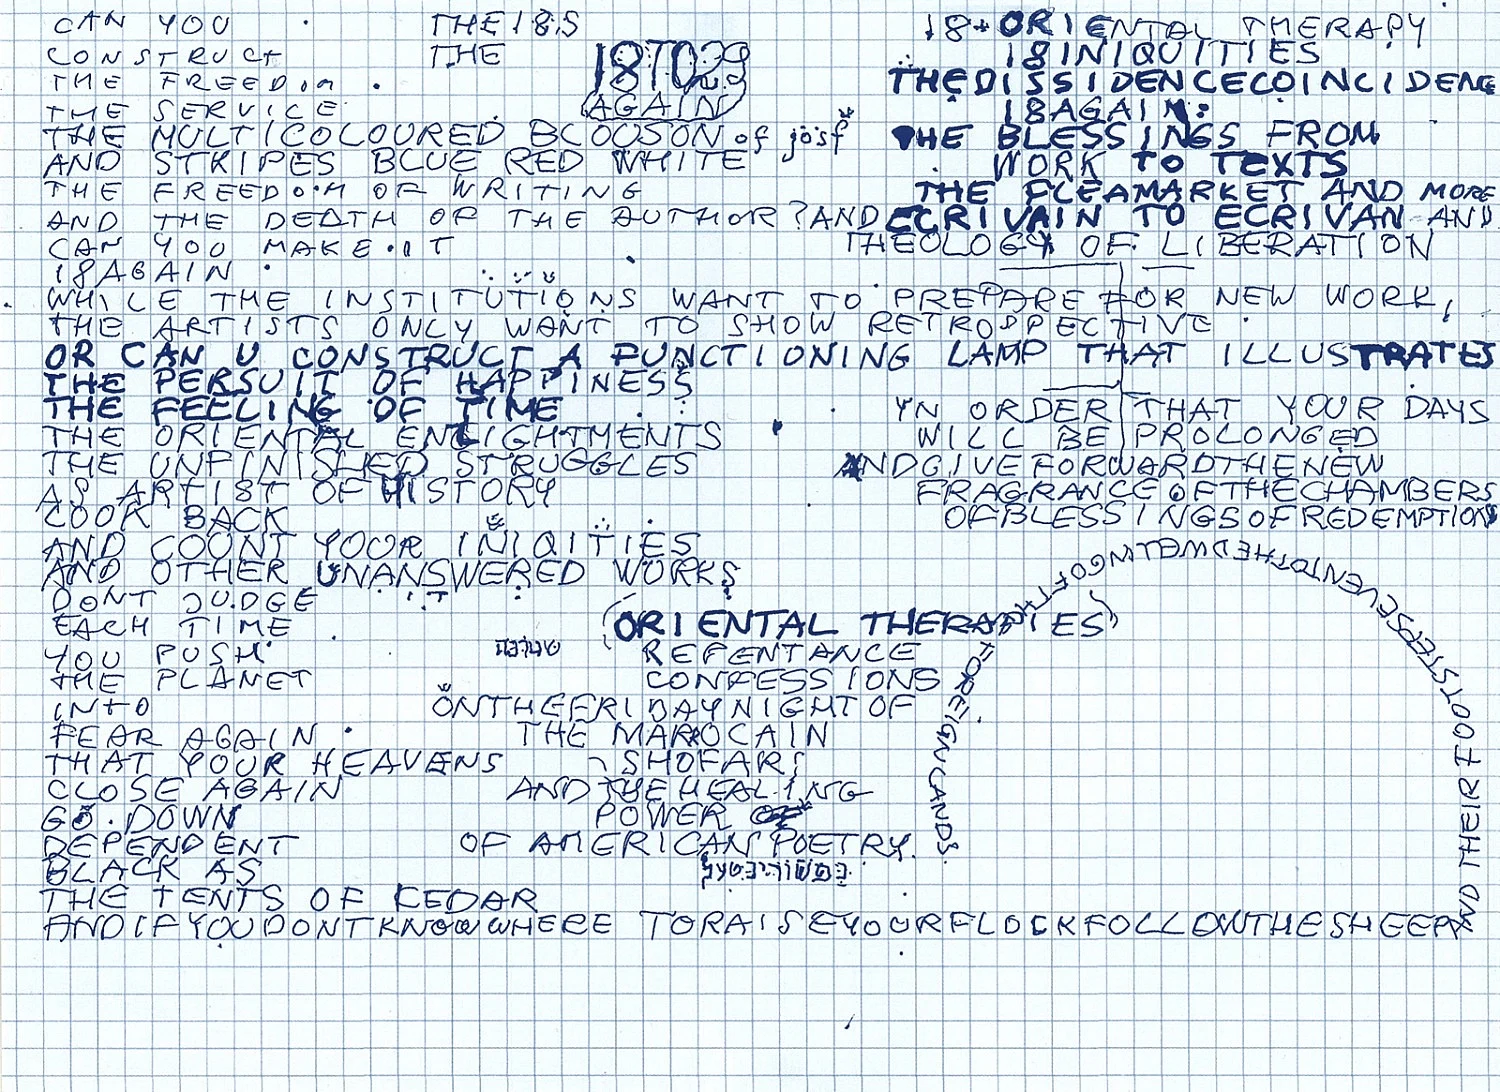 CAN YOU THE 18.S
CONSTRUCT THE 18TO29
THE FREEDOM AGAIN
THE SERVICE
THE MULTICOLOURED BLOUSON of josf
AND STRIPES BLUE RED WHITE
THE FREEDOM OF WRITING
AND THE DEATH OF THE AUTHOR? AND
CAN YOU MAKE IT
18AGAIN
18+ORIENTAL THERAPY
18INIQUITIES
THEDISSIDENCECOINCIDENCE
18AGAIN:
THE BLESSINGS FROM
WORK TO TEXTS
THE FLEAMARKET AND MORE
ECRIVAIN TO ECRIVAN AND
THEOLOGY OF LIBERATION
WHILE THE INSTITUTIONS WANT TO PREPARE FOR NEW WORK,
THE ARTISTS ONLY WANT TO SHOW RETROSPECTIVE
OR CAN U CONSTRUCT A FUNCTIONING LAMP THAT ILLUSTRATES
THE PERSUIT OF HAPPINESS
THE FEELING OF TIME
THE ORIENTAL ENLIGHTMENTS
THE UNFINISHED STRUGGLES
AS ARTIST OF HISTORY
LOOK BACK
AND COUNT YOUR INIQITIES
AND OTHER UNANSWERED WORKS
DONT JUDGE
EACH TIME
YOU PUSH
THE PLANET
INTO
FEAR AGAIN
THAT YOUR HEAVENS
CLOSE AGAIN
GO DOWN
DEPENDENT
BLACK AS
THE TENTS OF KEDAR
YN ORDER THAT YOUR DAYS
WILL BE PROLONGED
ANDGIVEFORWARDTHENEW
FRAGRANCEOFTHECHAMBERS
OFBLESSINGSOFREDEMPTIONS
(ORIENTAL THERAPIES)
REPENTANCE
CONFESSIONS
ONTHEFRIDAYNIGHTOF
THE MAROCAIN
SHOFAR:
ANDTHEHEALING
POWER
OF AMERICAN POETRY.
ANDIFYOUDONTKNOWWHERE TORAISEYOURFLOCKFOLLOWTHESHEEP
AND THEIR FOOTSTEPSEVENTOTHEDWELINGOFTHE FOREIGNLANDS.